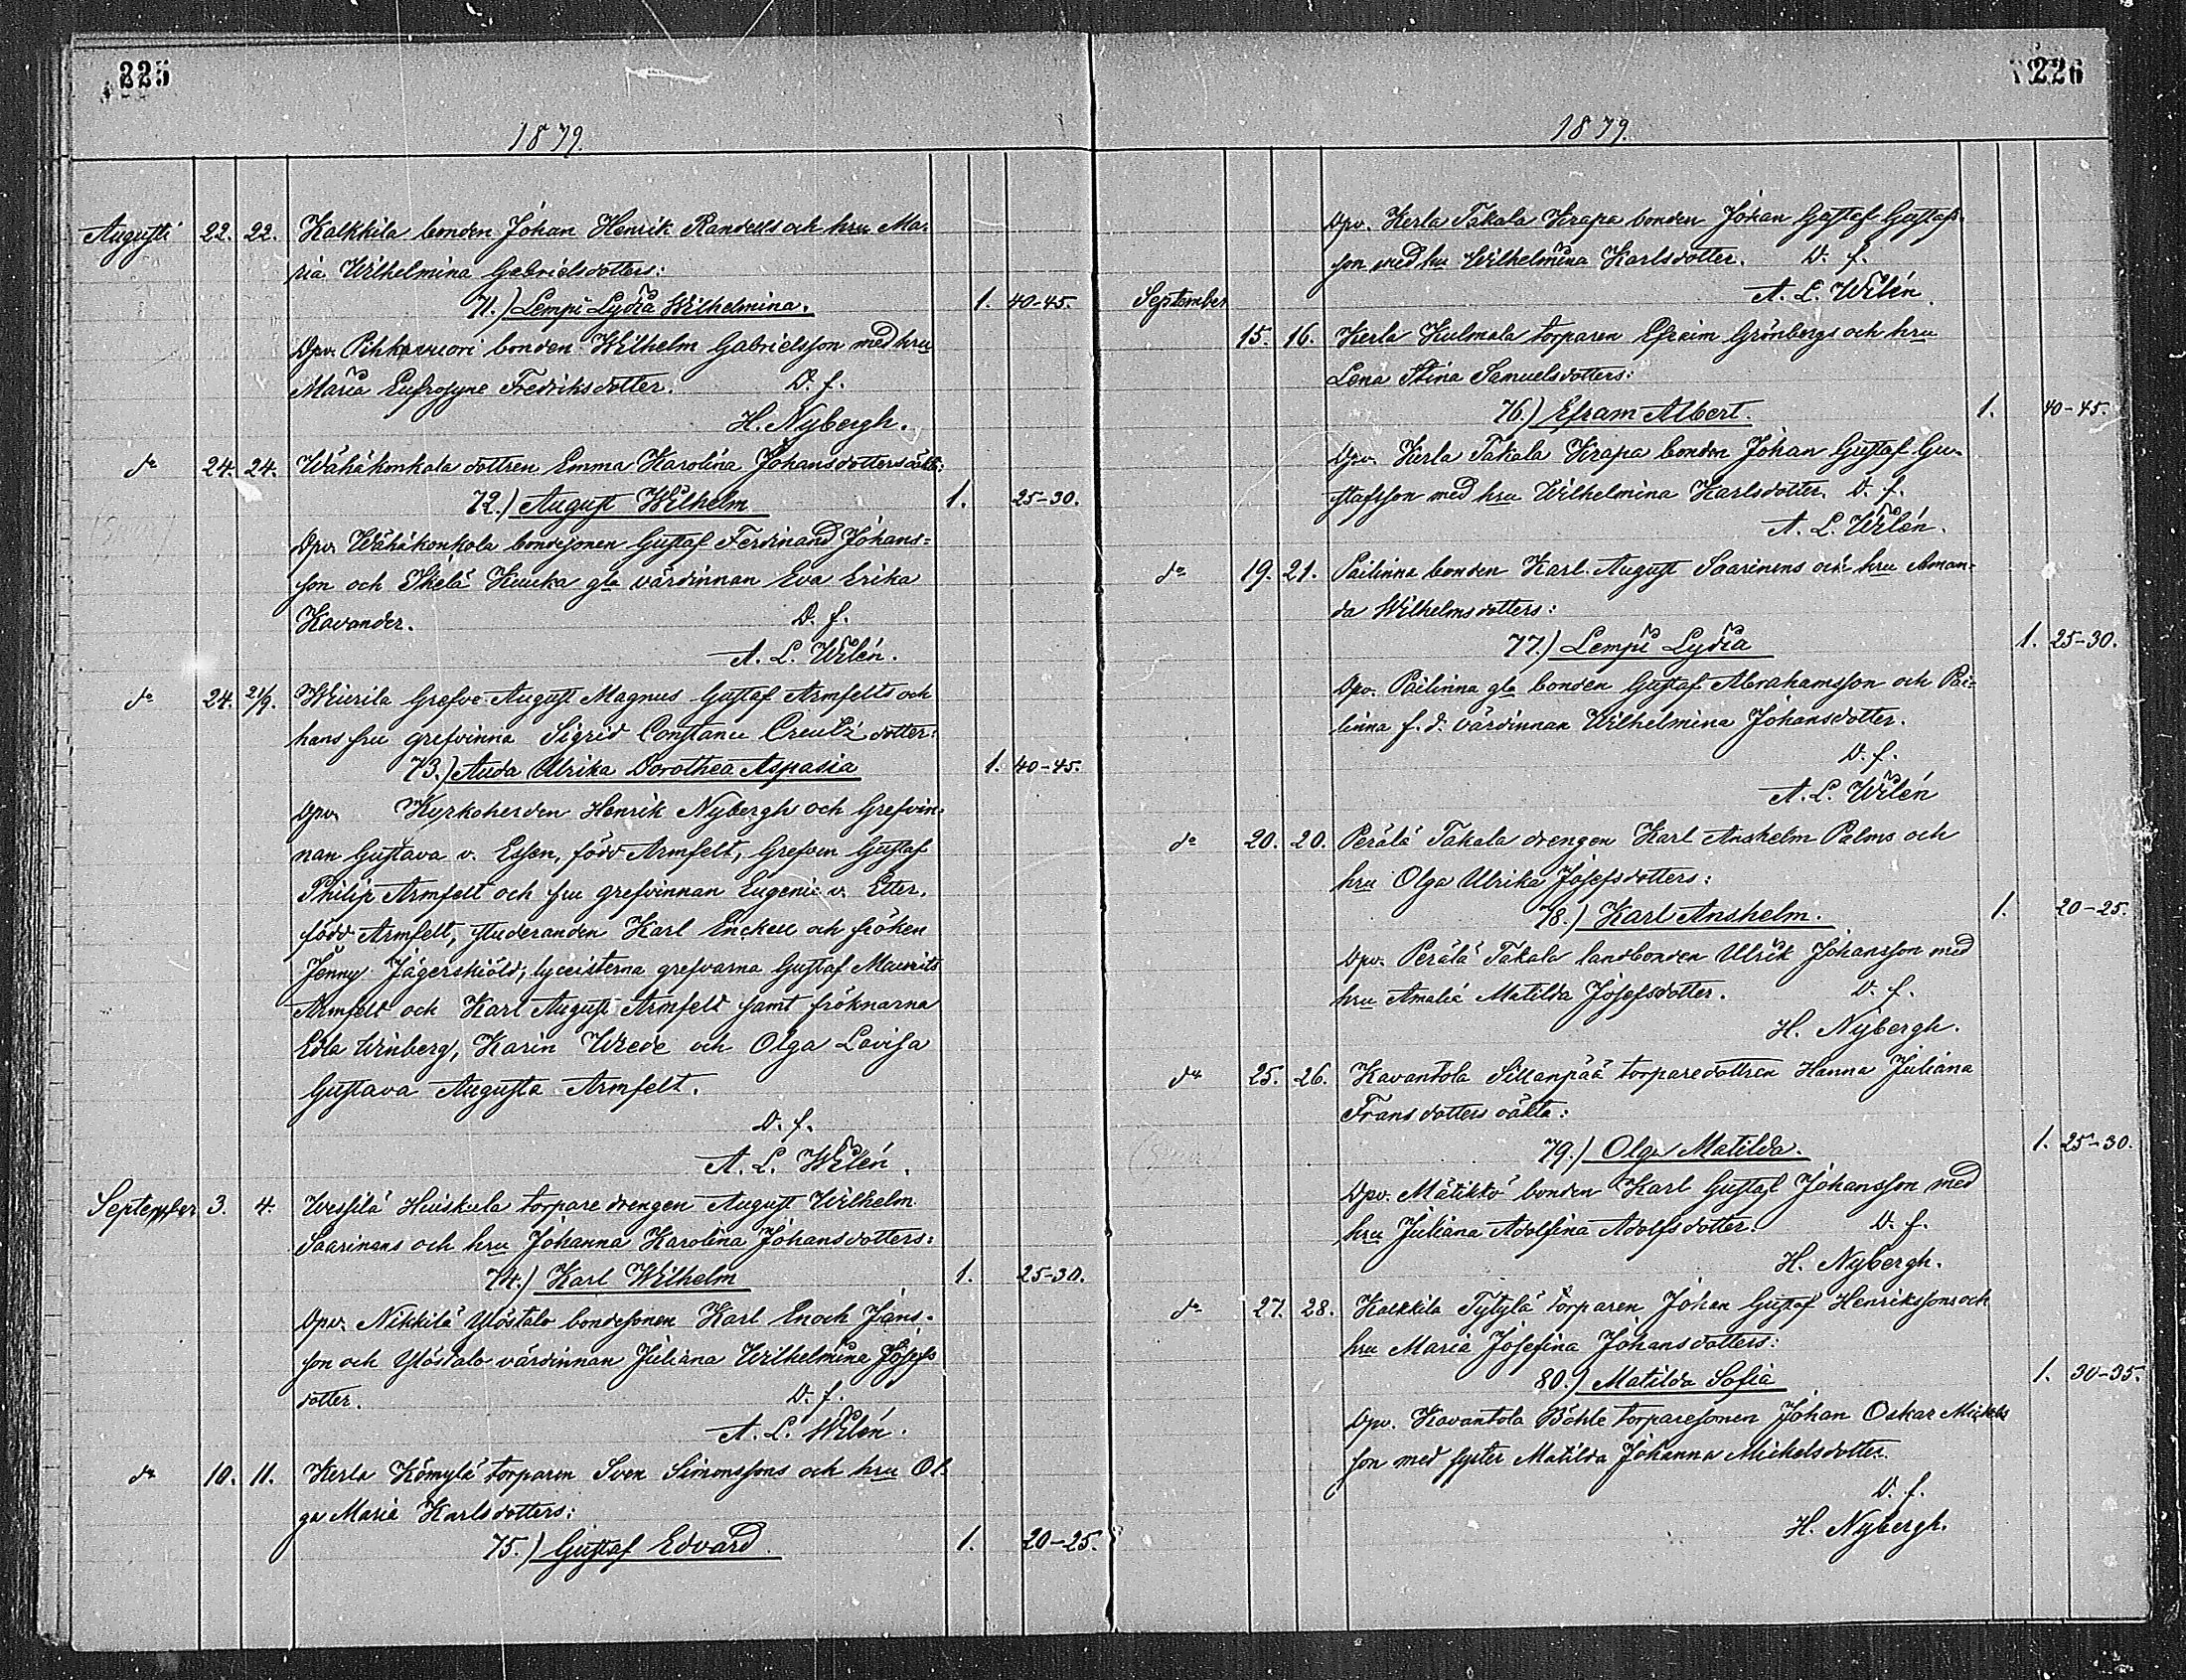 225
1879.
Augusti 22. 22. Kalkkila bonden Johan Henrik Randells och hru Ma-
ria Wilhelmina Gabrielsdotters:
71.) Lempi Lydia Wilhelmina. 1. 40-45.
Dpv. Pihkavuori bonden Wilhelm Gabrielsson med hru
Maria Eufrosyne Fredriksdotter. D. f.
H. Nybergh.
do 24. 24. Wähäkonkala dottren Emma Karolina Johansdotters oäkta:
72.) August Wilhelm 1. 25-30.
Dpv. Wähäkonkola bondesonen Gustaf Ferdinand Johans=
son och Skelä Kuuka gla värdinnan Eva Erika
Kavander. D. f.
A. L. Wilén.
do 24. 21/9. Wiurila Grefve August Magnus Gustaf Armfelts och
hans fru grefvinna Sigrid Constance Creutz' dotter:
73.) Auda Ulrika Dorothea Aspasia 1. 40-45.
Dpv. Kyrkoherden Henrik Nybergh och Grefvin-
nan Gustava v. Essen, född Armfelt, Grefven Gustaf
Philip Armfelt och fru grefvinnan Eugenie v. Etter,
född Armfelt, studeranden Karl Enckell och fröken
Jenny Jägerskiöld; lyceisterna grefvarna Gustaf Maurits
Armfelt och Karl August Armfelt samt fröknarna
Edla Winberg, Karin Wrede och Olga Lovisa
Gustava Augusta Armfelt.
D. f.
A. L. Wilén.
September 3. 4. Wessilä Huiskula torpare drengen August Wilhelm
Saarinens och hru Johanna Karolina Johansdotters:
74.) Karl Wilhelm 1. 25-30.
Dpv. Nikkilä Ylöstalo bondesonen Karl Enoch Jans-
son och Ylöstalo värdinnan Juliana Wilhelmina Josefs
dotter. D. f.
A. L. Wilén.
do 10. 11. Kerla Kömylä torparen Sven Simonssons och hru Ol-
ga Maria Karlsdotters:
75.) Gustaf Edvard. 1. 20-25.
226
1879.
Dpv. Kerla Takala Krapa bonden Johan Gustaf Gustafs-
son med hu Wilhelmina Karlsdotter. D. f.
A. L. Wilén.
September
15. 16. Kerla Kulmala torparen Efraim Grönbergs och hru
Lena Stina Samuelsdotters:
76.) Efram Albert. 1. 40-45.
Dpv. Kerla Takala Krapa bonden Johan Gustaf Gu-
stafsson med hru Wilhelmina Karlsdotter. D. f.
A. L. Wilén.
do 19. 21. Pailinna bonden Karl August Saarinens och hru Aman-
da Wilhelmsdotters:
77.) Lempi Lydia 1. 25-30.
Dpv. Pailinna gla bonden Gustaf Abrahamsson och Pai-
linna f. d. värdinnan Wilhelmina Johansdotter.
D. f.
A. L. Wilén
do 20. 20. Perälä Takala drengen Karl Anshelm Palms och
hru Olga Ulrika Josefsdotters:
78.) Karl Anshelm. 1. 20-25.
Dpv. Perälä Takala landbonden Ulrik Johansson med
hru Amalia Matilda Josefsdotter. D. f.
H. Nybergh.
do 25. 26. Kavantola Sillanpää torparedottren Hanna Juliana
Frans dotters oäkta:
79.) Olga Matilda. 1. 25-30.
Dpv. Mätikkö bonden Karl Gustaf Johansson med
hru Juliana Adolfina Adolfsdotter. D. f.
H. Nybergh.
do 27. 28. Kalkkila Tytylä torparen Johan Gustaf Henrikssons och
hru Maria Josefina Johansdotters:
80.) Matilda Sofia 1. 30-35.
Dpv. Kavantola Böhle torparesonen Johan Oskar Mickels
son med syster Matilda Johanna Mickelsdotter.
D. f.
H. Nybergh.